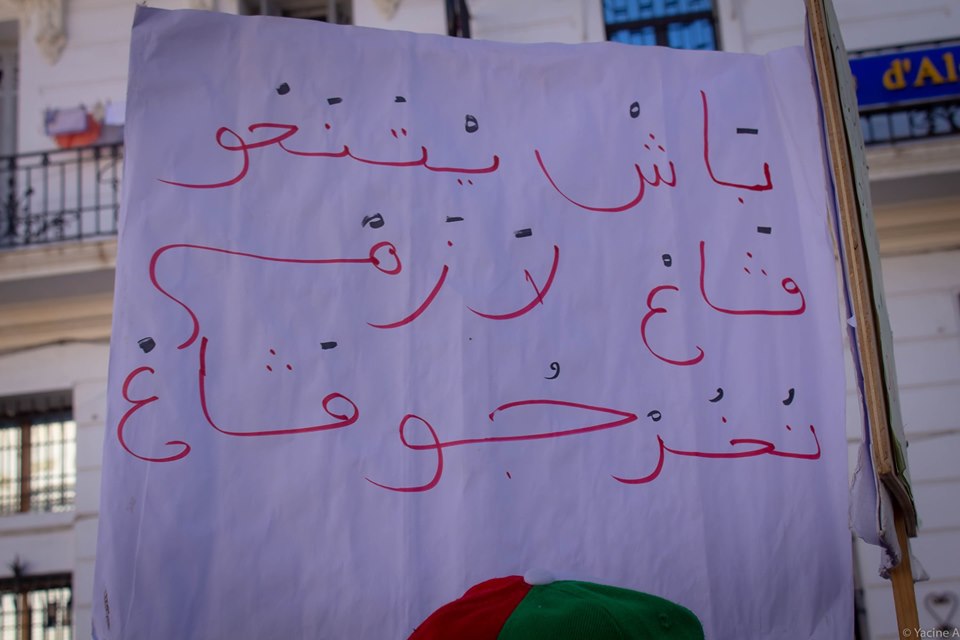 بَاشْ يْتَنَحْو
قَاعْ لَازَمْ
نُخُرْجُو قَاعْ
d'Al
© Yacine A